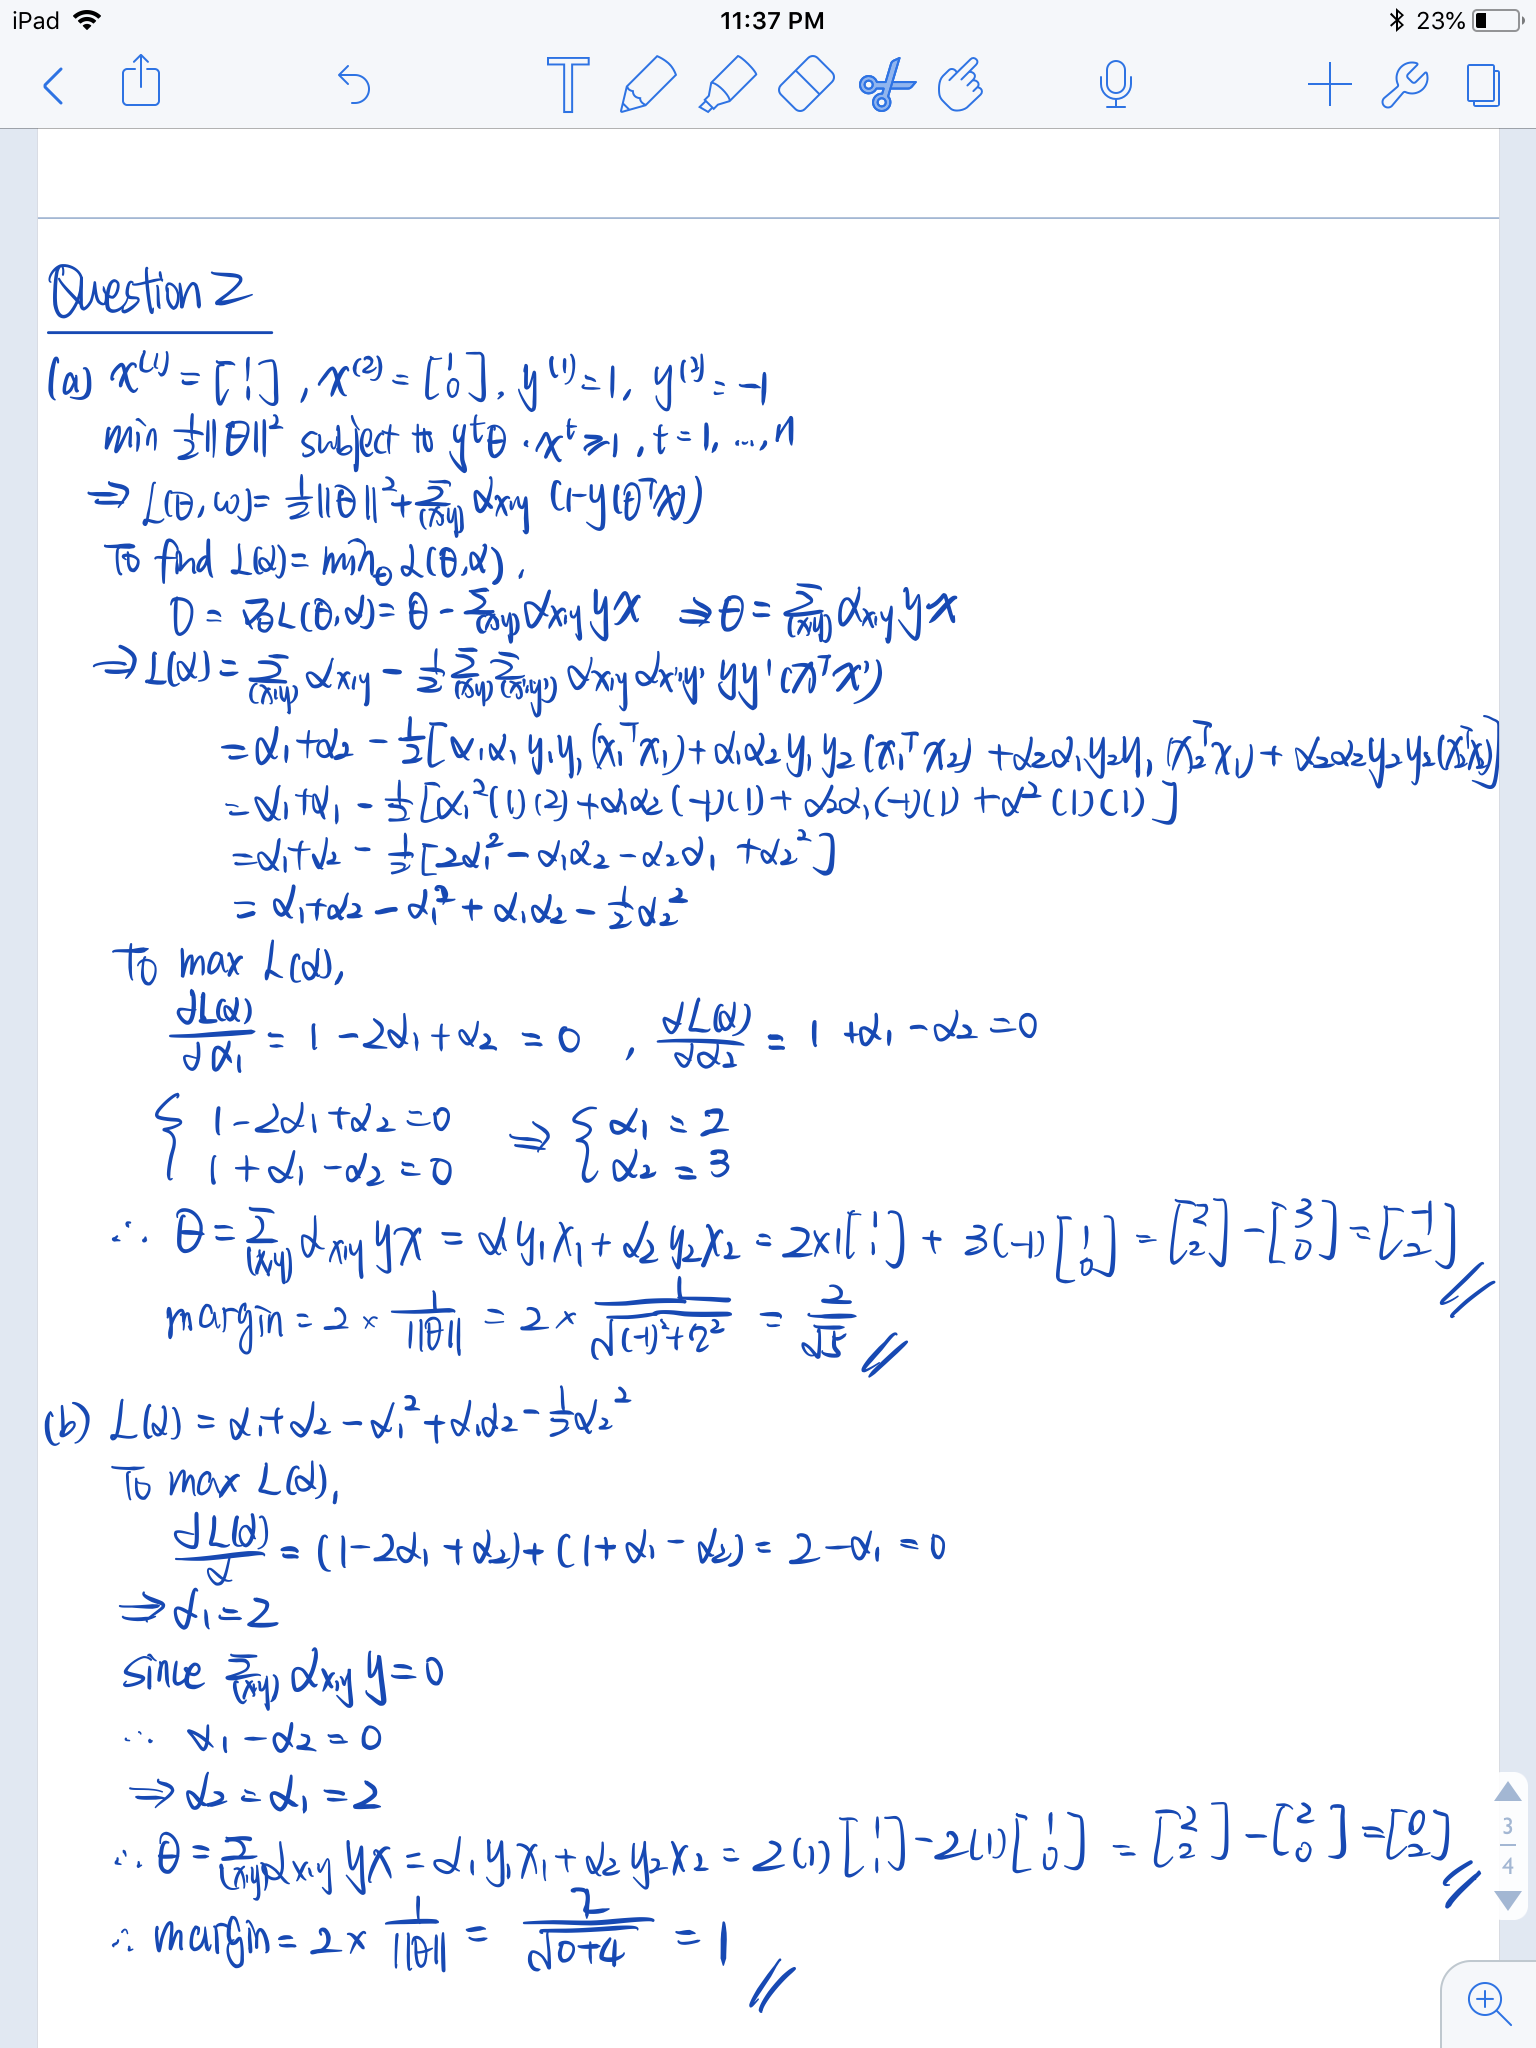 iPad 11:37 PM 23%
T
Question 2
(a) x⁽¹⁾ = [1 1], x⁽²⁾ = [1 0], y⁽¹⁾ = 1, y⁽²⁾ = -1
min ½||θ||² subject to yᵗθ · xᵗ ≥ 1, t = 1, ..., n
⇒ L(θ, ω) = ½||θ||² + Σ_(x,y) α_x,y (1-y(θᵀx))
To find L(α) = min_θ L(θ,α),
0 = ∇_θ L(θ,α) = θ - Σ_(x,y) α_x,y yx ⇒ θ = Σ_(x,y) α_x,y yx
⇒ L(α) = Σ_(x,y) α_x,y - ½ Σ_(x,y) Σ_(x',y') α_x,y α_x',y' yy' (xᵀx')
= α₁+α₂ - ½[α₁α₁y₁y₁(x₁ᵀx₁) + α₁α₂y₁y₂(x₁ᵀx₂) + α₂α₁y₂y₁(x₂ᵀx₁) + α₂α₂y₂y₂(x₂ᵀx₂)]
= α₁+α₁ - ½[α₁²(1)(2) + α₁α₂(-1)(1) + α₂α₁(-1)(1) + α²(1)(1)]
= α₁+α₂ - ½[2α₁² - α₁α₂ - α₂α₁ + α₂²]
= α₁+α₂ - α₁² + α₁α₂ - ½α₂²
To max L(α),
dL(α)/dα₁ = 1 - 2α₁ + α₂ = 0 , dL(α)/dα₂ = 1 + α₁ - α₂ = 0
{ 1 - 2α₁ + α₂ = 0 ⇒ { α₁ = 2
1 + α₁ - α₂ = 0 α₂ = 3
∴ θ = Σ_(x,y) α_x,y yx = α₁y₁x₁ + α₂y₂x₂ = 2×1[1 1] + 3(-1)[1 0] = [2 2] - [3 0] = [-1 2] //
margin = 2 × 1/||θ|| = 2 × 1/√((-1)²+2²) = 2/√5 //
(b) L(α) = α₁+α₂ - α₁² + α₁α₂ - ½α₂²
To max L(α),
dL(α)/α = (1-2α₁+α₂) + (1+α₁-α₂) = 2-α₁ = 0
⇒ α₁ = 2
since Σ_(x,y) α_x,y y = 0
∴ α₁ - α₂ = 0
⇒ α₂ = α₁ = 2
∴ θ = Σ_(x,y) α_x,y yx = α₁y₁x₁ + α₂y₂x₂ = 2(1)[1 1] - 2(1)[1 0] = [2 2] - [2 0] = [0 2] //
∴ margin = 2 × 1/||θ|| = 2/√(0+4) = 1 //
3
4